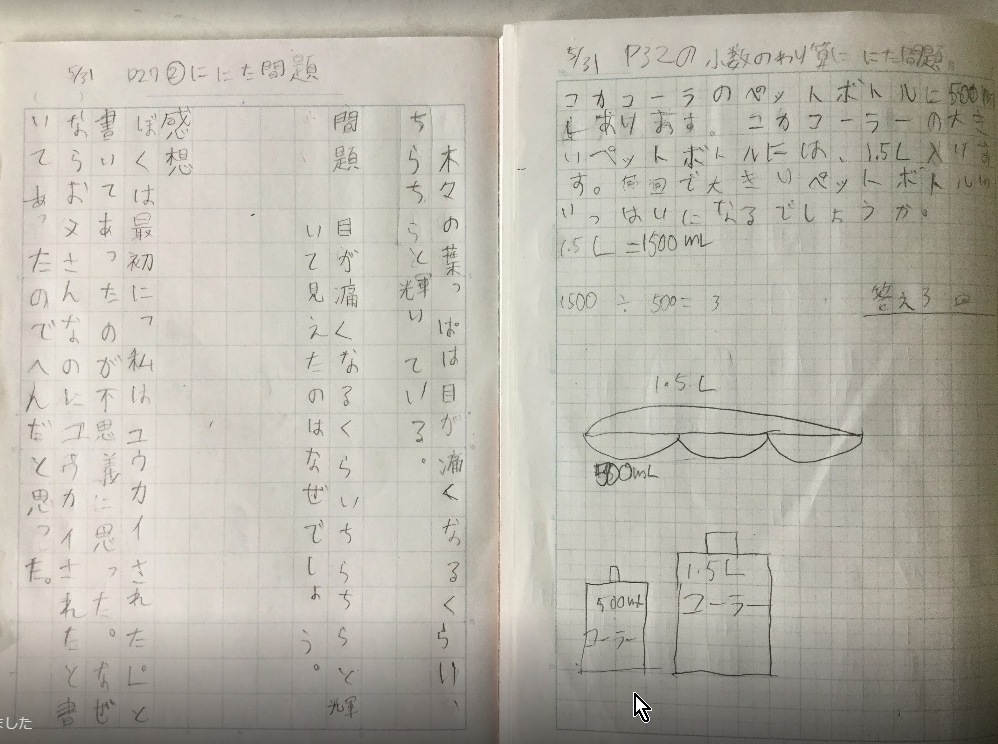 5/31 P27②ににた問題
木々の葉っぱは目が痛くなるくらい、
ちらちらと輝いている。
問題 目が痛くなるくらいちらちらと輝
いて見えたのはなぜでしょう。
感想
ぼくは最初に「私はユウカイされた」と
書いてあったのが不思議に思った。なぜ
ならお父さんなのにユウカイされたと書
いてあったのでへんだと思った。
5/31 P32の小数のわり算ににた問題
コカコーラのペットボトルに500m
Lあります。コカコーラーの大き
いペットボトルには、1.5L入りま
す。何回で大きいペットボトルが
いっはいになるでしょうか。
1.5L=1500mL
1500÷500=3
答え3回
1.5L
500mL
500mL
コーラー
1.5L
コーラー
ました